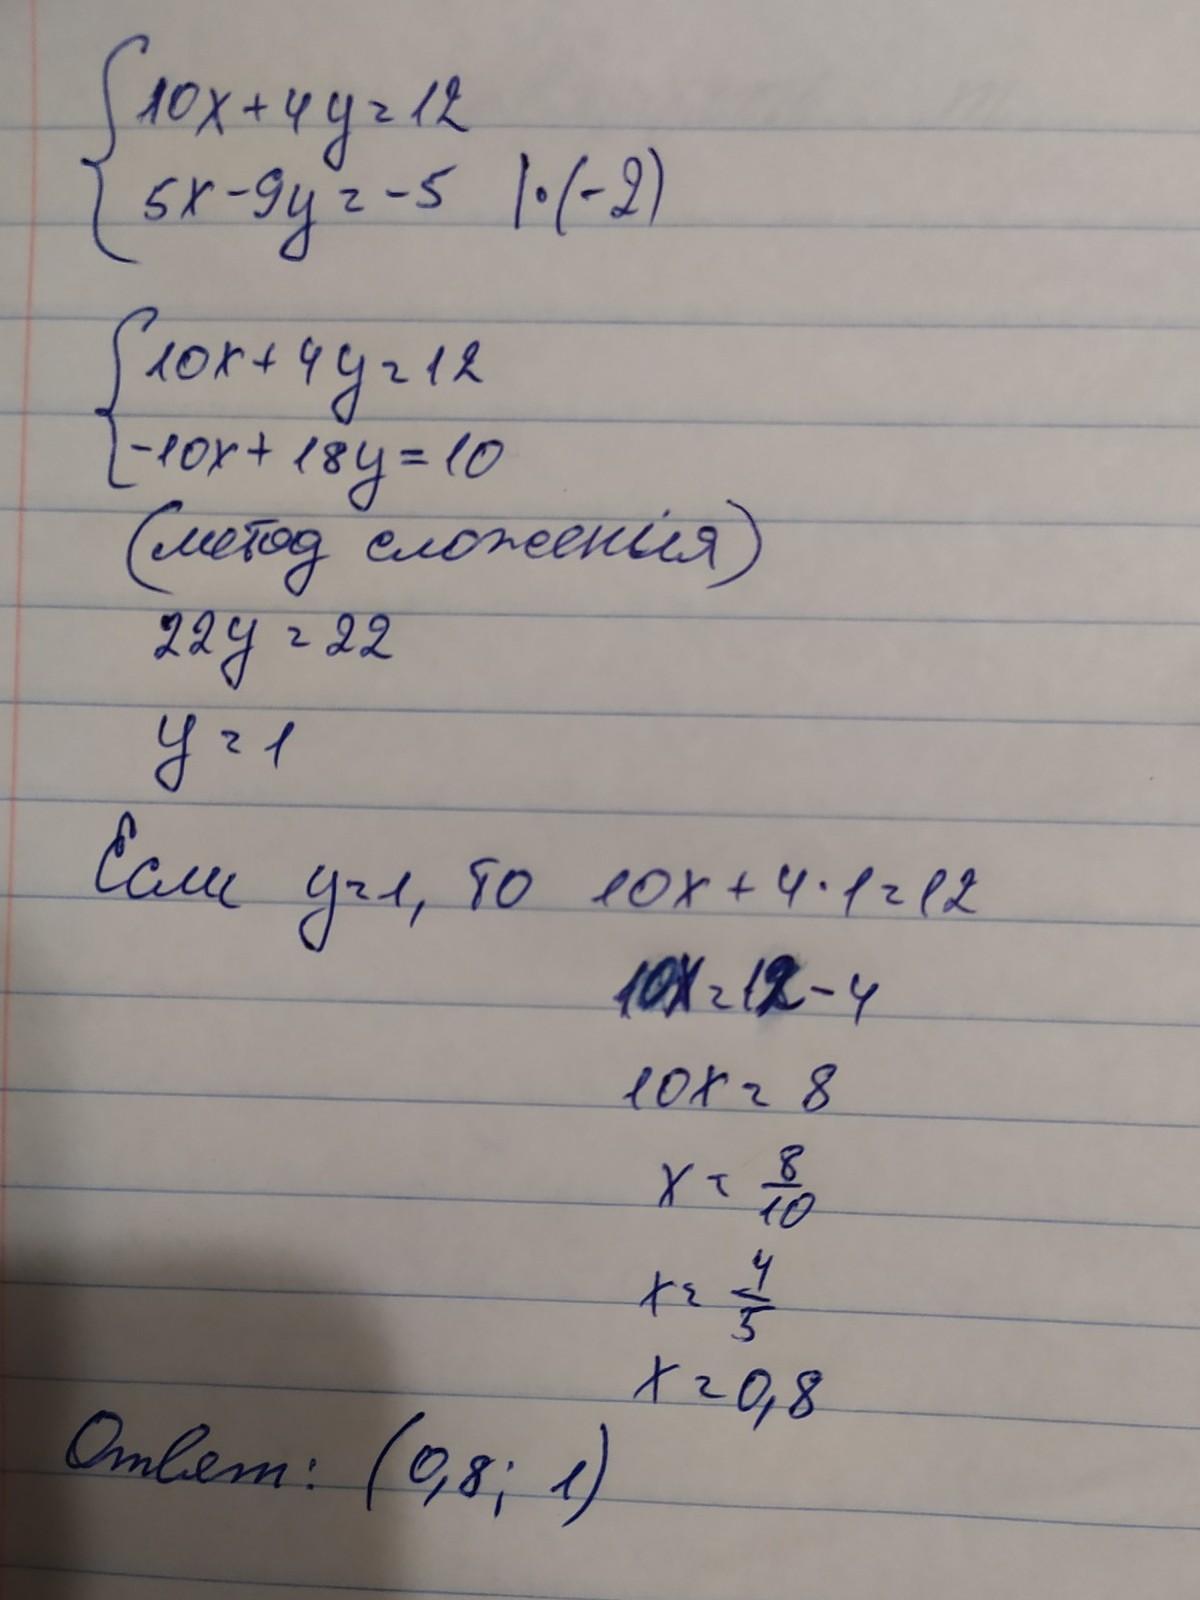 10x+4y=12
5x-9y=-5 |·(-2)
10x+4y=12
-10x+18y=10
(метод сложения)
22y=22
y=1
Если y=1, то 10x+4·1=12
10x=12-4
10x=8
x=8/10
x=4/5
x=0,8
Ответ: (0,8; 1)